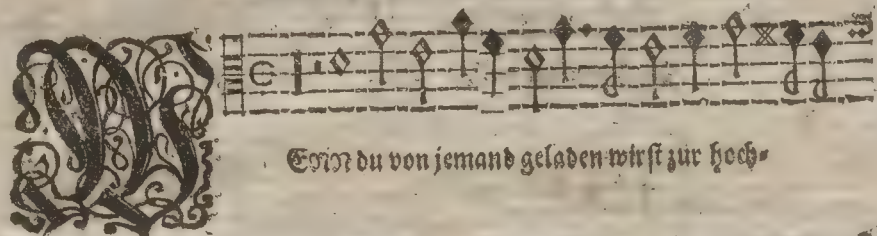 WEnn du von jemand geladen wirst zur hoch⸗